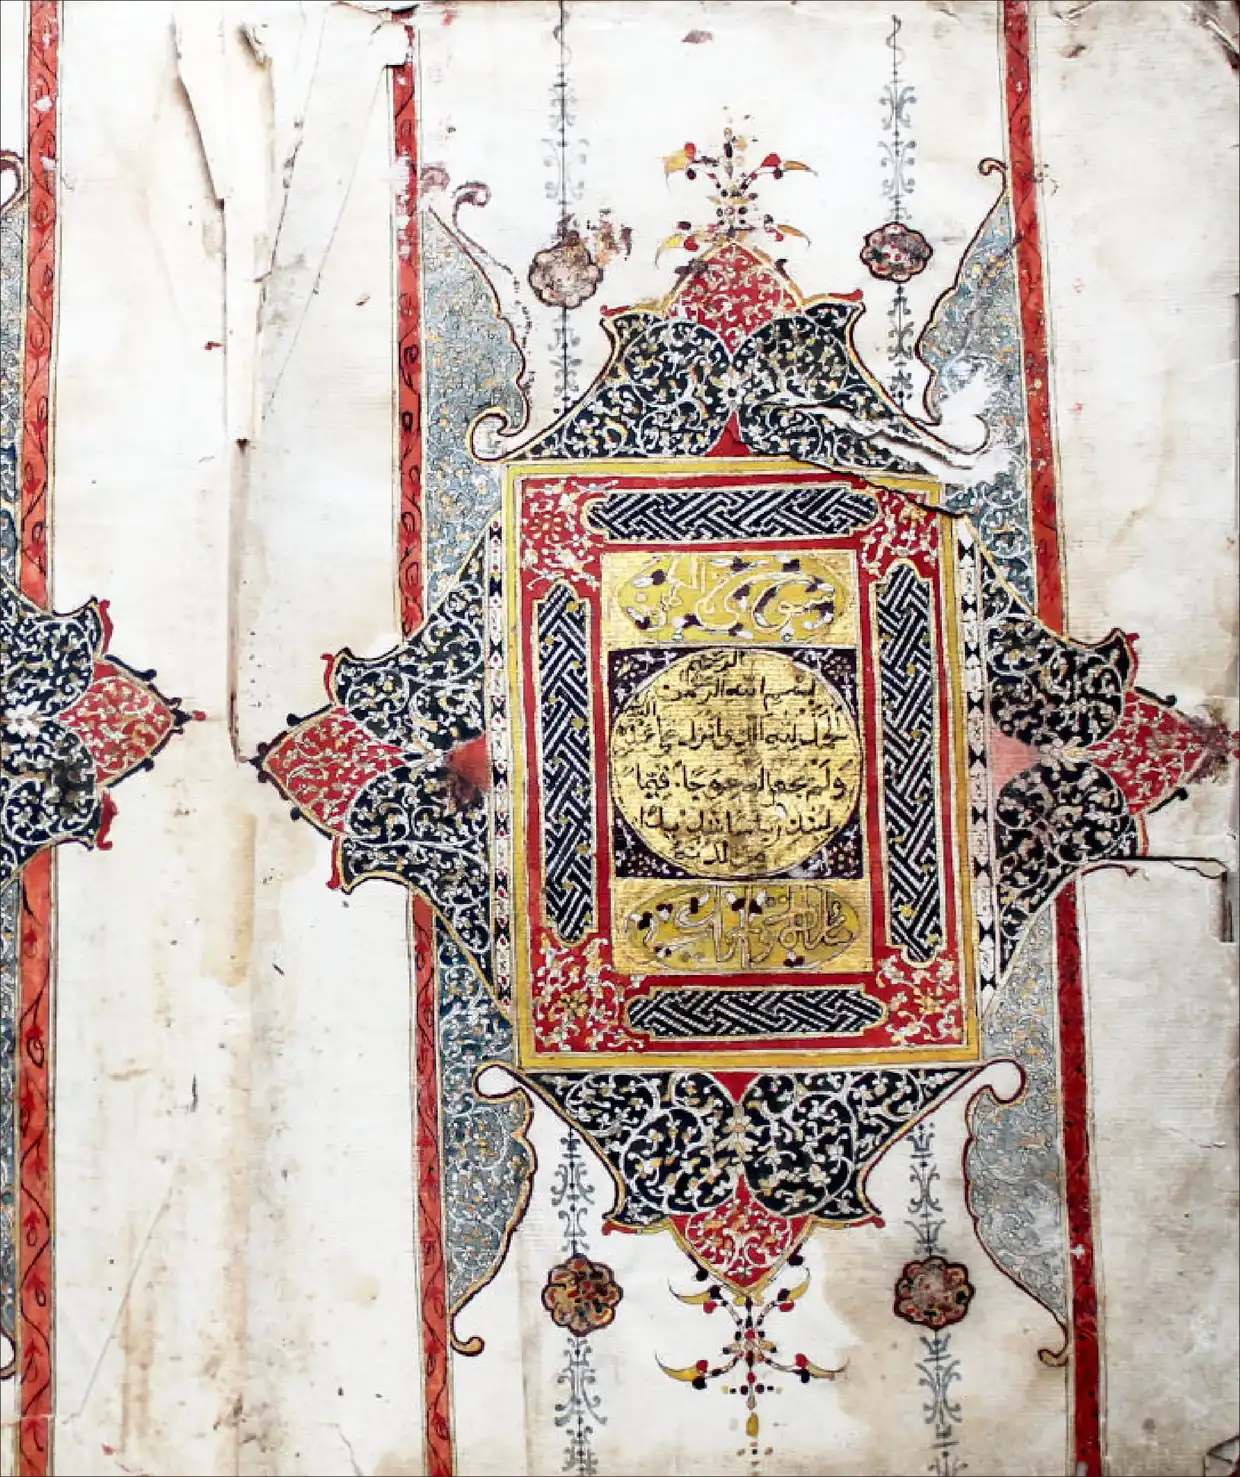 سورة الكهف
بسم الله الرحمن الرحيم
الحمد لله الذي انزل على عبده
ولم يجعل له عوجا قيما
لينذر باسا شديدا
من لدنه